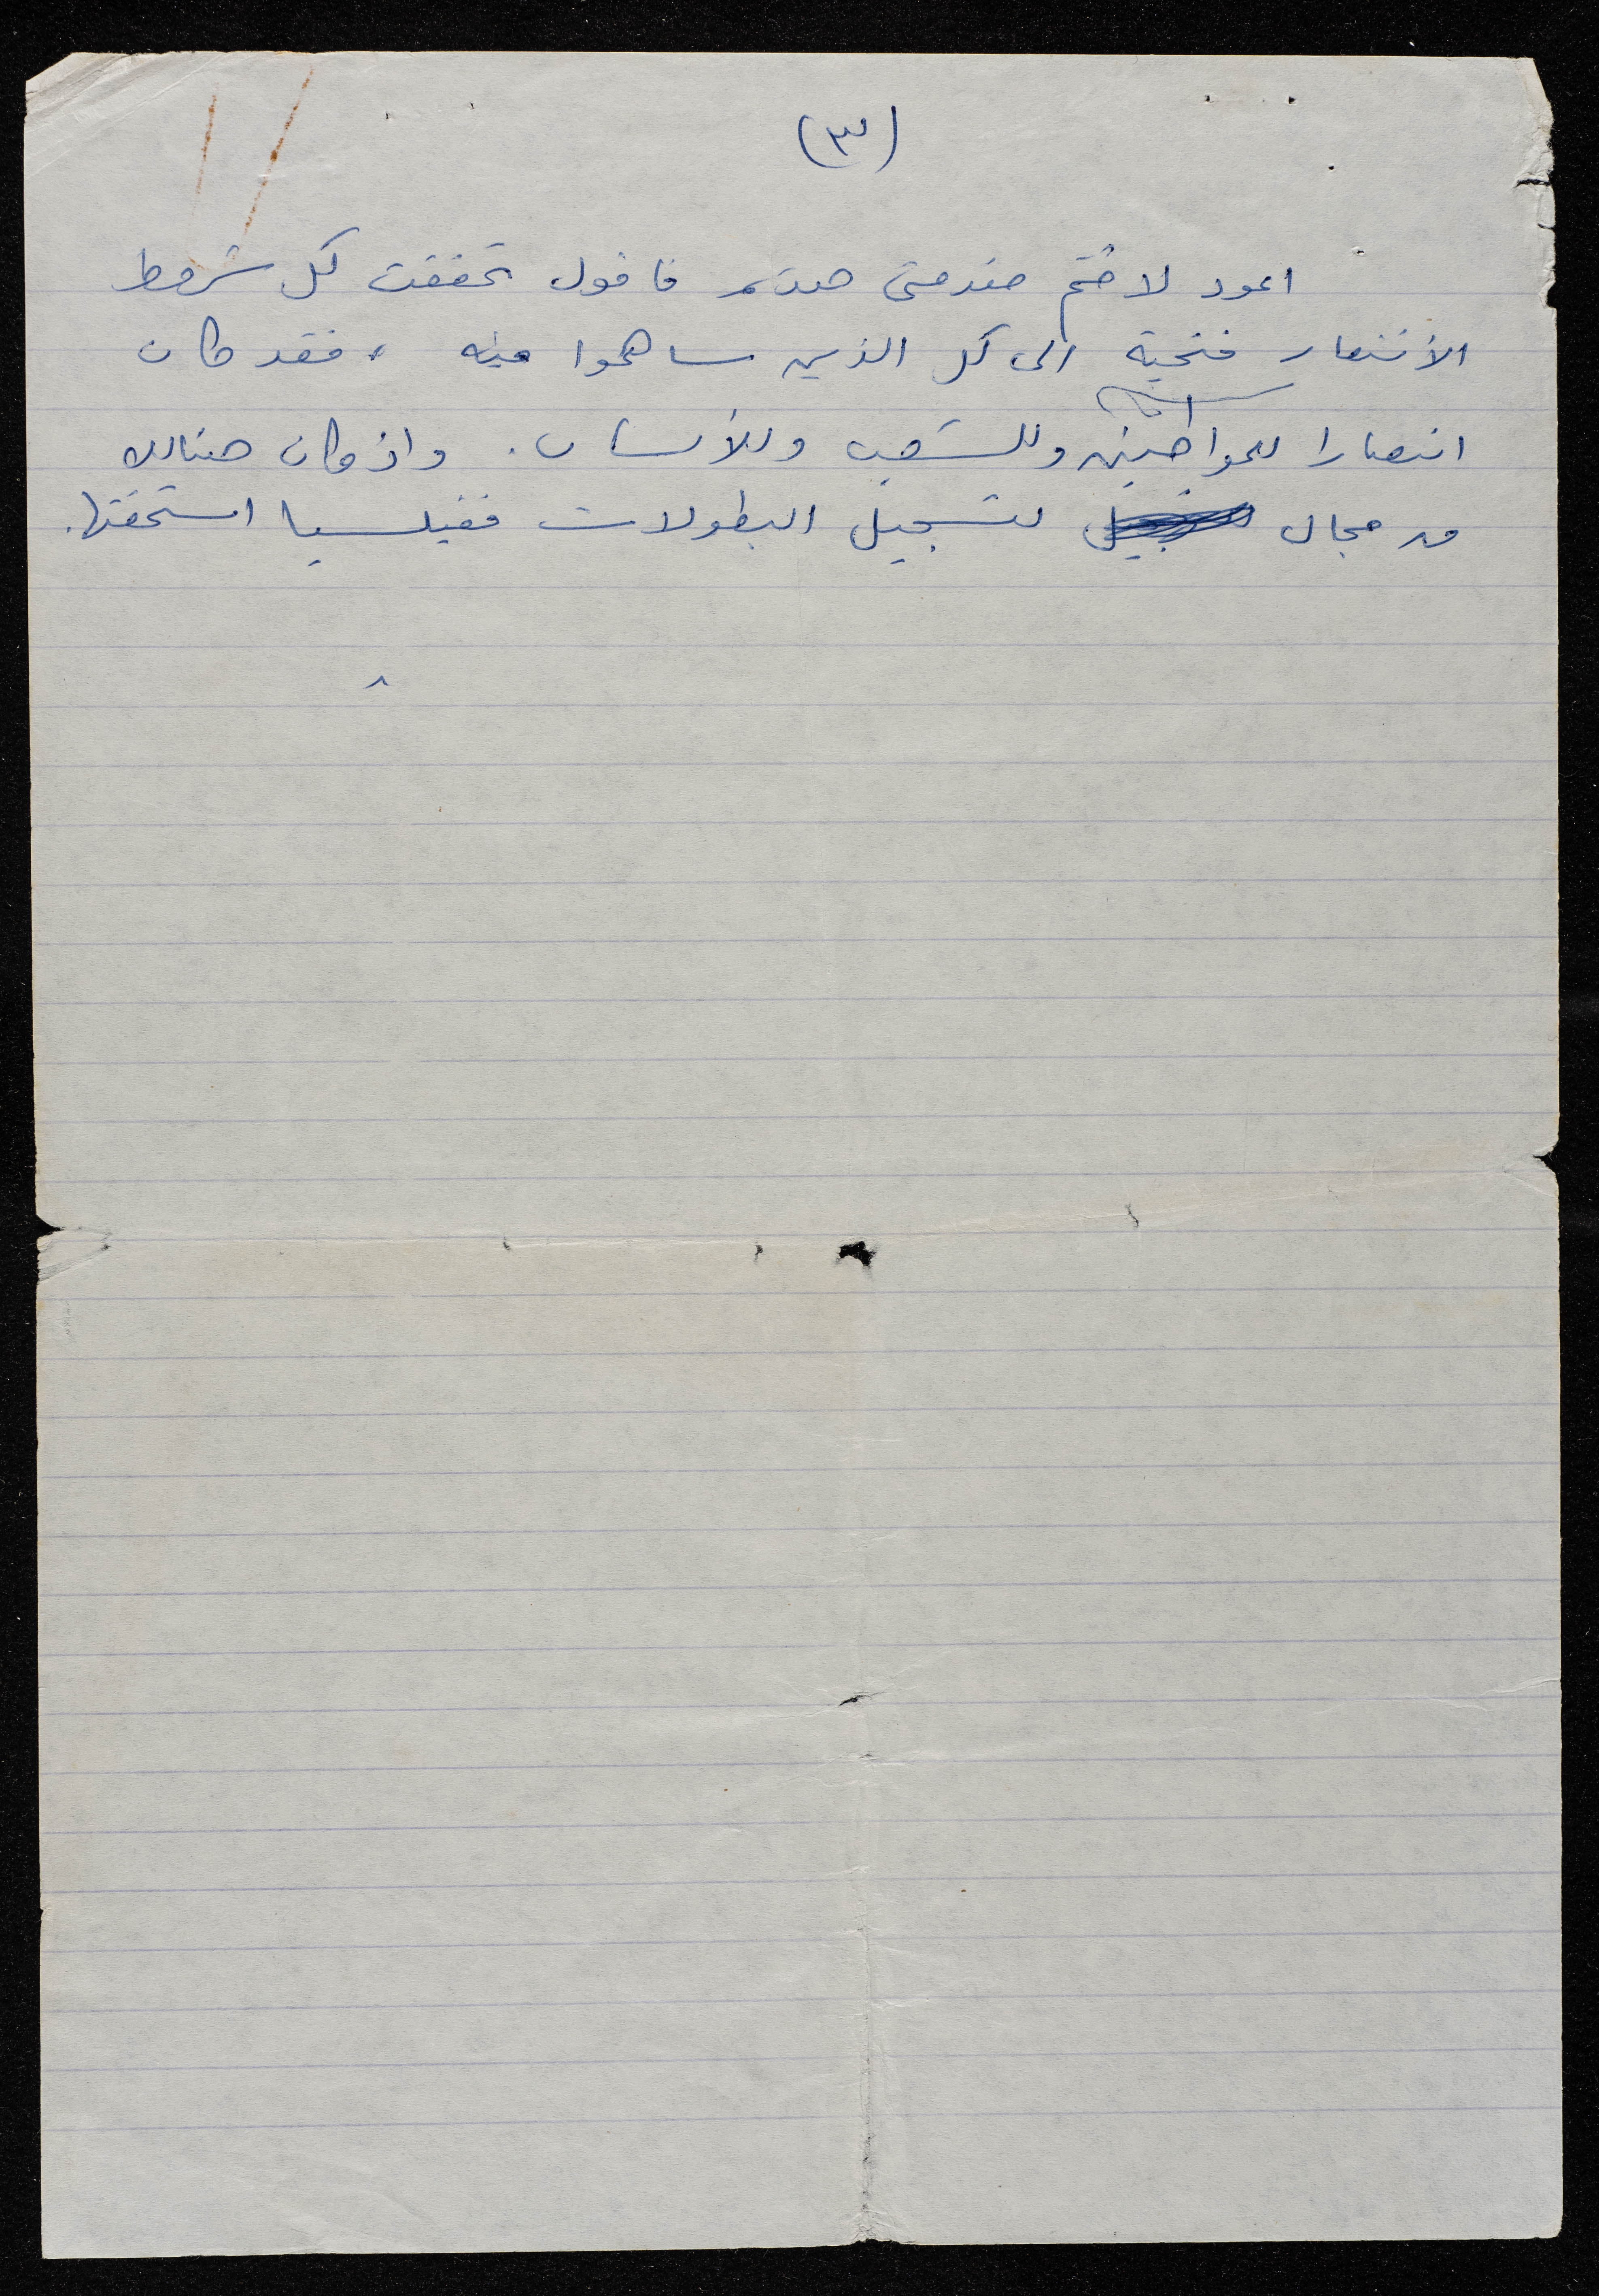 (٣)
اعود لاختم مقدمتي هذه فاقول تحققت كل شروط
الانتصار فتحية الى كل الذين ساهموا فيه ، فقد كان
انتصارا للمواطنين وللشعب وللأنسان . واذ كان هنالك
من مجال لتسجيل البطولات ففيلسيا استحقتها .